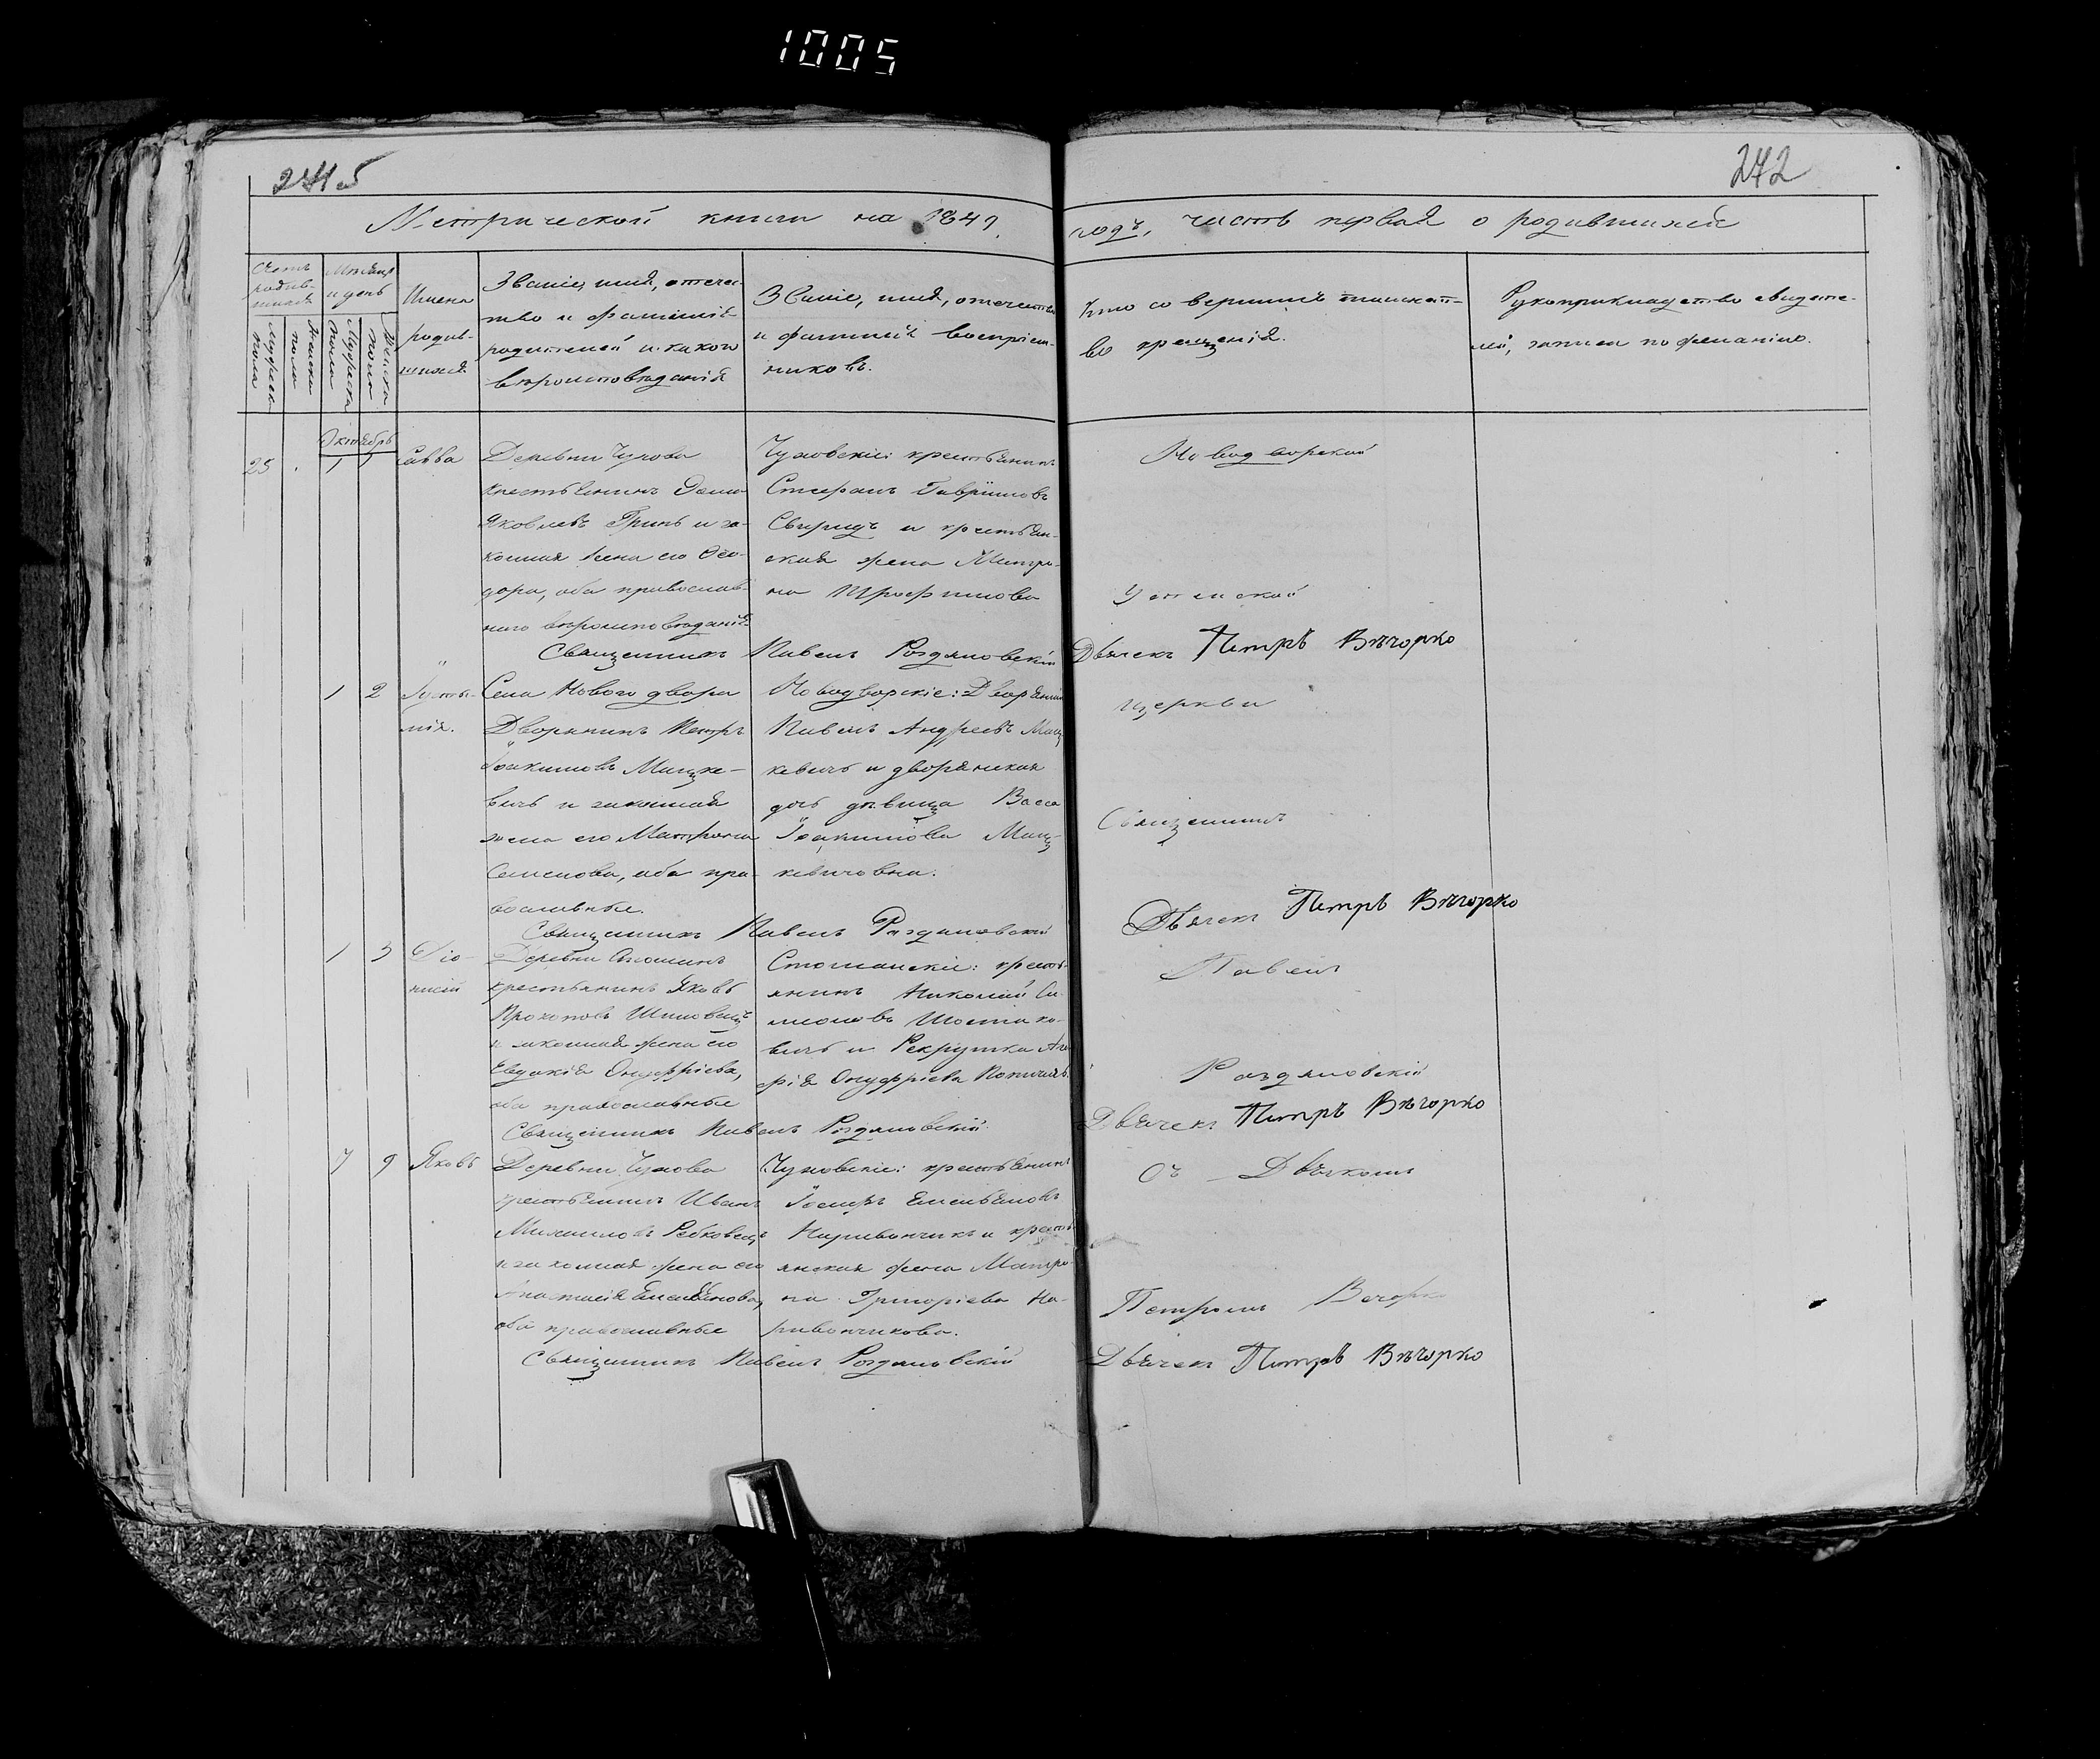 1005
2415
272
Метрической книги на 1849
годъ, часть первая о родившихся
Счетъ родив-шихся
Мужеска пола
Женска пола
Месяцъ и день
Имена
родив-
шихся
Званіе, имя, отече-
ство и фамилія
родителей и какого
вѣроисповѣданія
Званіе, имя, отечество
и фамилія воспріем-
никовъ.
Кто совершилъ таинст-
во крещенія.
Рукоприкладство свидѣте-
лей, записи по желанію.
Октябрь
25
1
1
Савва
Деревни Чухова
крестьянинъ
Яковлевъ Гринь и за-
конная жена его Ѳео-
дора, оба православ-
наго вѣроисповѣданія
Чуховскіе: крестьянинъ
Стефанъ Гавріиловъ
Свиридъ и крестьян-
ская жена Матро-
на Трофимова
Новодворской
Успенской
Священникъ Павелъ Роздяловскій
Дьячекъ Петръ Вѣчорко
1
2
Іуста-
нія.
Села Нового двора
Дворянинъ Петръ
Іоакимовъ Мацке-
вичъ и законная
жена его Матрона
Семенова, оба пра-
вославные.
Новодворскіе: Дворянинъ
Павелъ Андреевъ Мац
кевичъ и дворянская
дочь дѣвица Васса
Іоакимова Мац-
кевичовна.
церкви
Священникъ
Священникъ Павелъ Роздяловскій
Дьячекъ Петръ Вѣчорко
1
3
Діо-
нисій
Деревни
крестьянинъ Яковъ
Прокоповъ
и законная жена его
Евдокія Онуфріева,
оба православные
крестъ-
янинъ Николай Си-
моновъ
вичъ и Рекрутка Ага-
фія Онуфріева
Павелъ
Роздяловскій
Священникъ Павелъ Роздяловскій
Дьячекъ Петръ Вѣчорко
7
9
Яковъ
Деревни Чухова
крестьянинъ Иванъ
Михайловъ Ребковецъ
и законная жена его
Анастасія Емельянова,
оба православные
Чуховскіе: крестьянинъ
Іосифъ Емельяновъ
Наривончикъ и кресть
янская жена Матро-
на Григоріева На-
ривончикова.
Съ Дьячкомъ
Петромъ Вечорко
Священникъ Павелъ Роздяловскій
Дьячекъ Петръ Вѣчорко